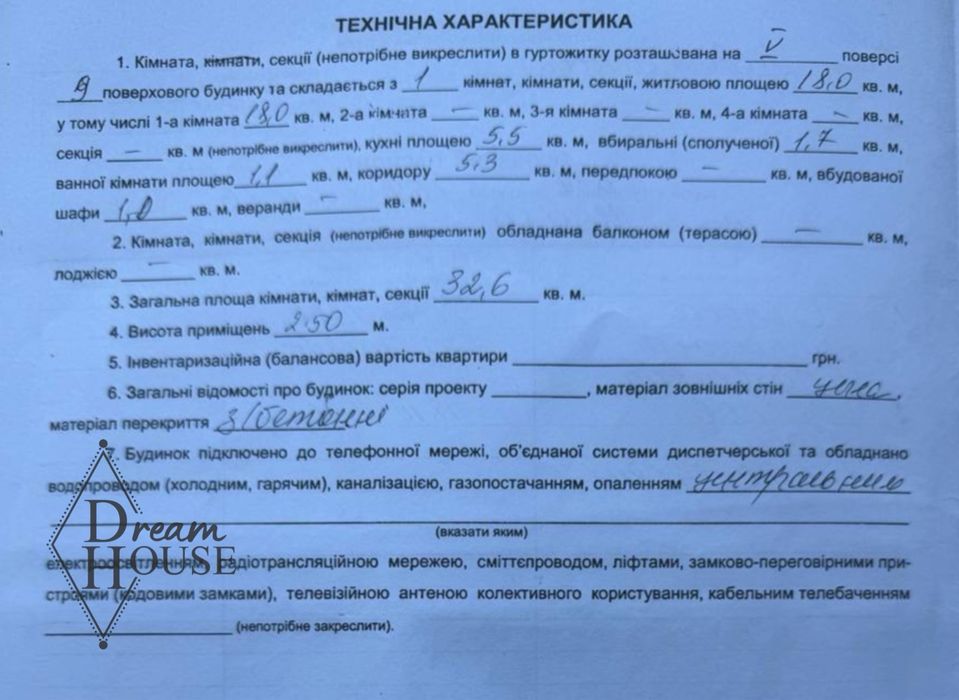 ТЕХНІЧНА ХАРАКТЕРИСТИКА
1. Кімната, кімнати, секції (непотрібне викреслити) в гуртожитку розташована на V поверсі
9 поверхового будинку та складається з 1 кімнат, кімнати, секції, житловою площею 18,0 кв. м,
у тому числі 1-а кімната 18,0 кв. м, 2-а кімната — кв. м, 3-я кімната — кв. м, 4-а кімната — кв. м,
секція — кв. м (непотрібне викреслити), кухні площею 5,5 кв. м, вбиральні (сполученої) 1,7 кв. м,
ванної кімнати площею 1,1 кв. м, коридору 5,3 кв. м, передпокою — кв. м, вбудованої
шафи 1,0 кв. м, веранди — кв. м,
2. Кімната, кімнати, секція (непотрібне викреслити) обладнана балконом (терасою) — кв. м,
лоджією — кв. м.
3. Загальна площа кімнати, кімнат, секції 32,6 кв. м.
4. Висота приміщень 2.50 м.
5. Інвентаризаційна (балансова) вартість квартири грн.
6. Загальні відомості про будинок: серія проекту , матеріал зовнішніх стін
матеріал перекриття з/бетонні
7. Будинок підключено до телефонної мережі, об'єднаної системи диспетчерської та обладнано
водопроводом (холодним, гарячим), каналізацією, газопостачанням, опаленням
(вказати яким)
електроосвітленням, радіотрансляційною мережею, сміттєпроводом, ліфтами, замково-переговірними при-
строями (кодовими замками), телевізійною антеною колективного користування, кабельним телебаченням
(непотрібне закреслити).
Dream
HOUSE